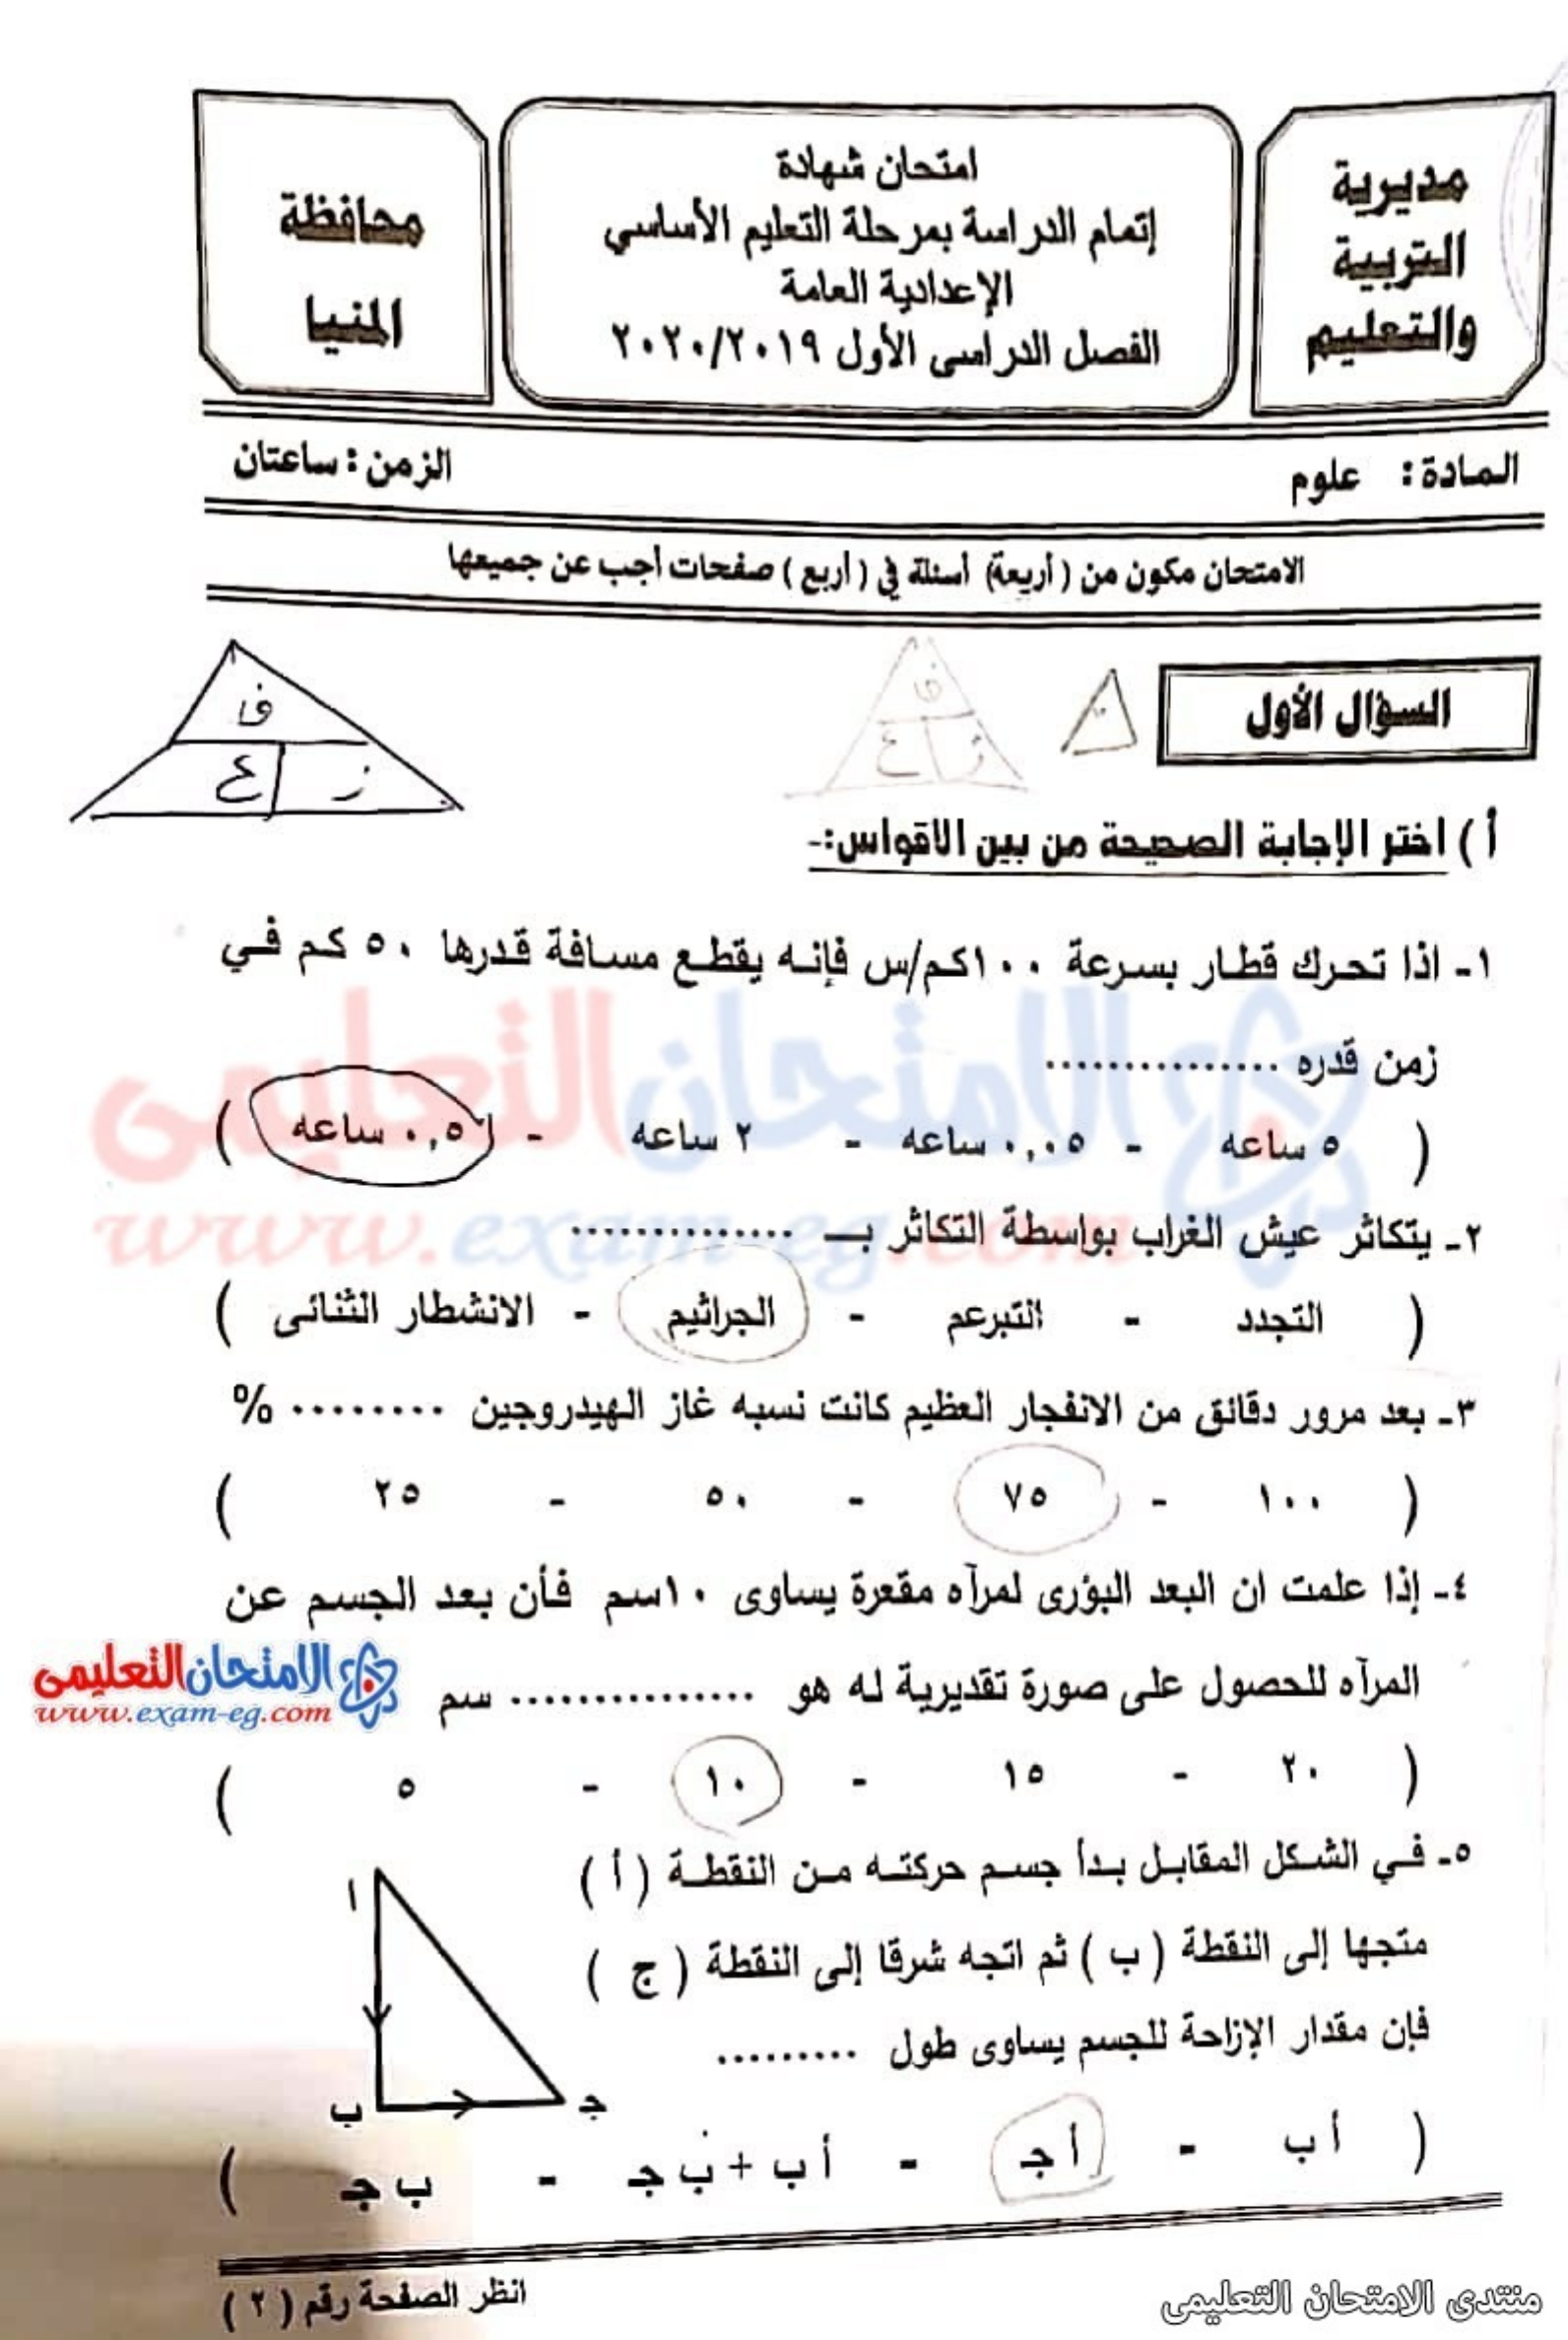 مديرية
التربية
والتعليم
امتحان شهادة
إتمام الدراسة بمرحلة التعليم الأساسي
الإعدادية العامة
الفصل الدراسى الأول ٢٠٢٠/٢٠١٩
محافظة
المنيا
المادة : علوم
الزمن : ساعتان
الامتحان مكون من ( أربعة) أسئلة في ( أربع ) صفحات أجب عن جميعها
السؤال الأول
ف
ع ز
ف
ع ز
أ ) اختر الإجابة الصحيحة من بين الاقواس:-
١- اذا تحرك قطار بسرعة ١٠٠كم/س فإنه يقطع مسافة قدرها ٥٠ كم في
زمن قدره ...............
( ٥ ساعه - ٠,٠٥ ساعه - ٢ ساعه - ٠,٥ ساعه )
٢- يتكاثر عيش الغراب بواسطة التكاثر بـ ..............
( التجدد - التبرعم - الجراثيم - الانشطار الثنائى )
٣- بعد مرور دقائق من الانفجار العظيم كانت نسبه غاز الهيدروجين ......... %
( ١٠٠ - ٧٥ - ٥٠ - ٢٥ )
٤- إذا علمت ان البعد البؤرى لمرآه مقعرة يساوى ١٠سم فأن بعد الجسم عن
المرآه للحصول على صورة تقديرية له هو ............... سم
( ٢٠ - ١٥ - ١٠ - ٥ )
٥- في الشكل المقابل بدأ جسم حركته من النقطة ( أ )
متجها إلى النقطة ( ب ) ثم اتجه شرقا إلى النقطة ( ج )
فإن مقدار الإزاحة للجسم يساوى طول .........
ا
ب
جـ
( أ ب - أ جـ - أ ب + ب جـ - ب جـ )
انظر الصفحة رقم ( ٢ )
الامتحان التعليمى
www.exam-eg.com
الامتحان التعليمى
www.exam-eg.com
منتدى الامتحان التعليمى